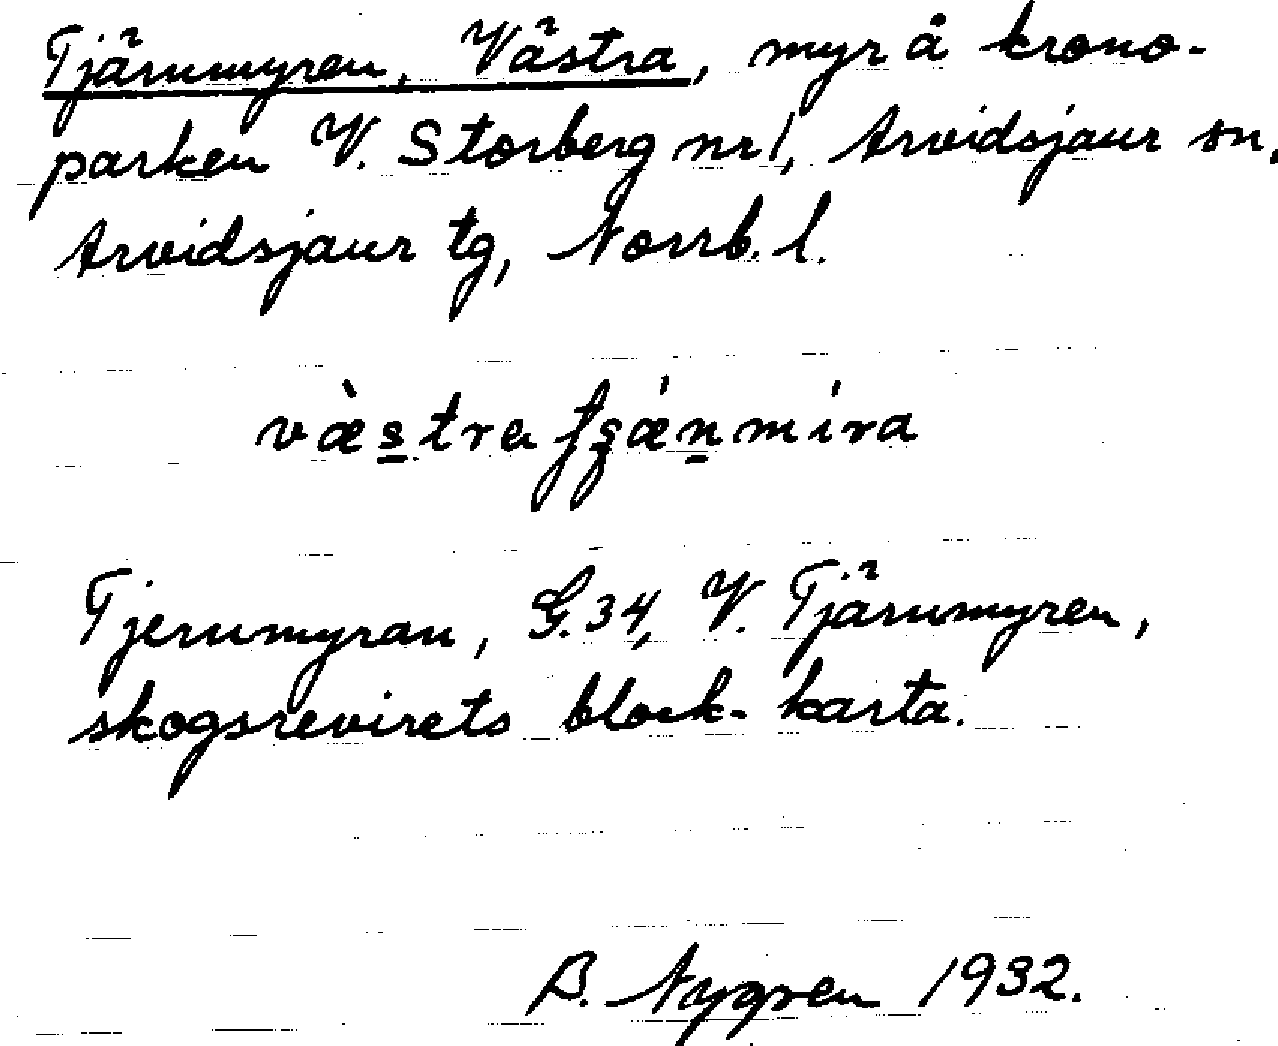 Tjärnmyren, Västra, myr å krono-
parken V. Storberg nr 1, Arvidsjaur sn,
Arvidsjaur tg, Norrb. l.
væ̀stra
Tjernmyran, G.34, V. Tjärnmyren,
skogsrevirets block-karta.
B. Nygren 1932.